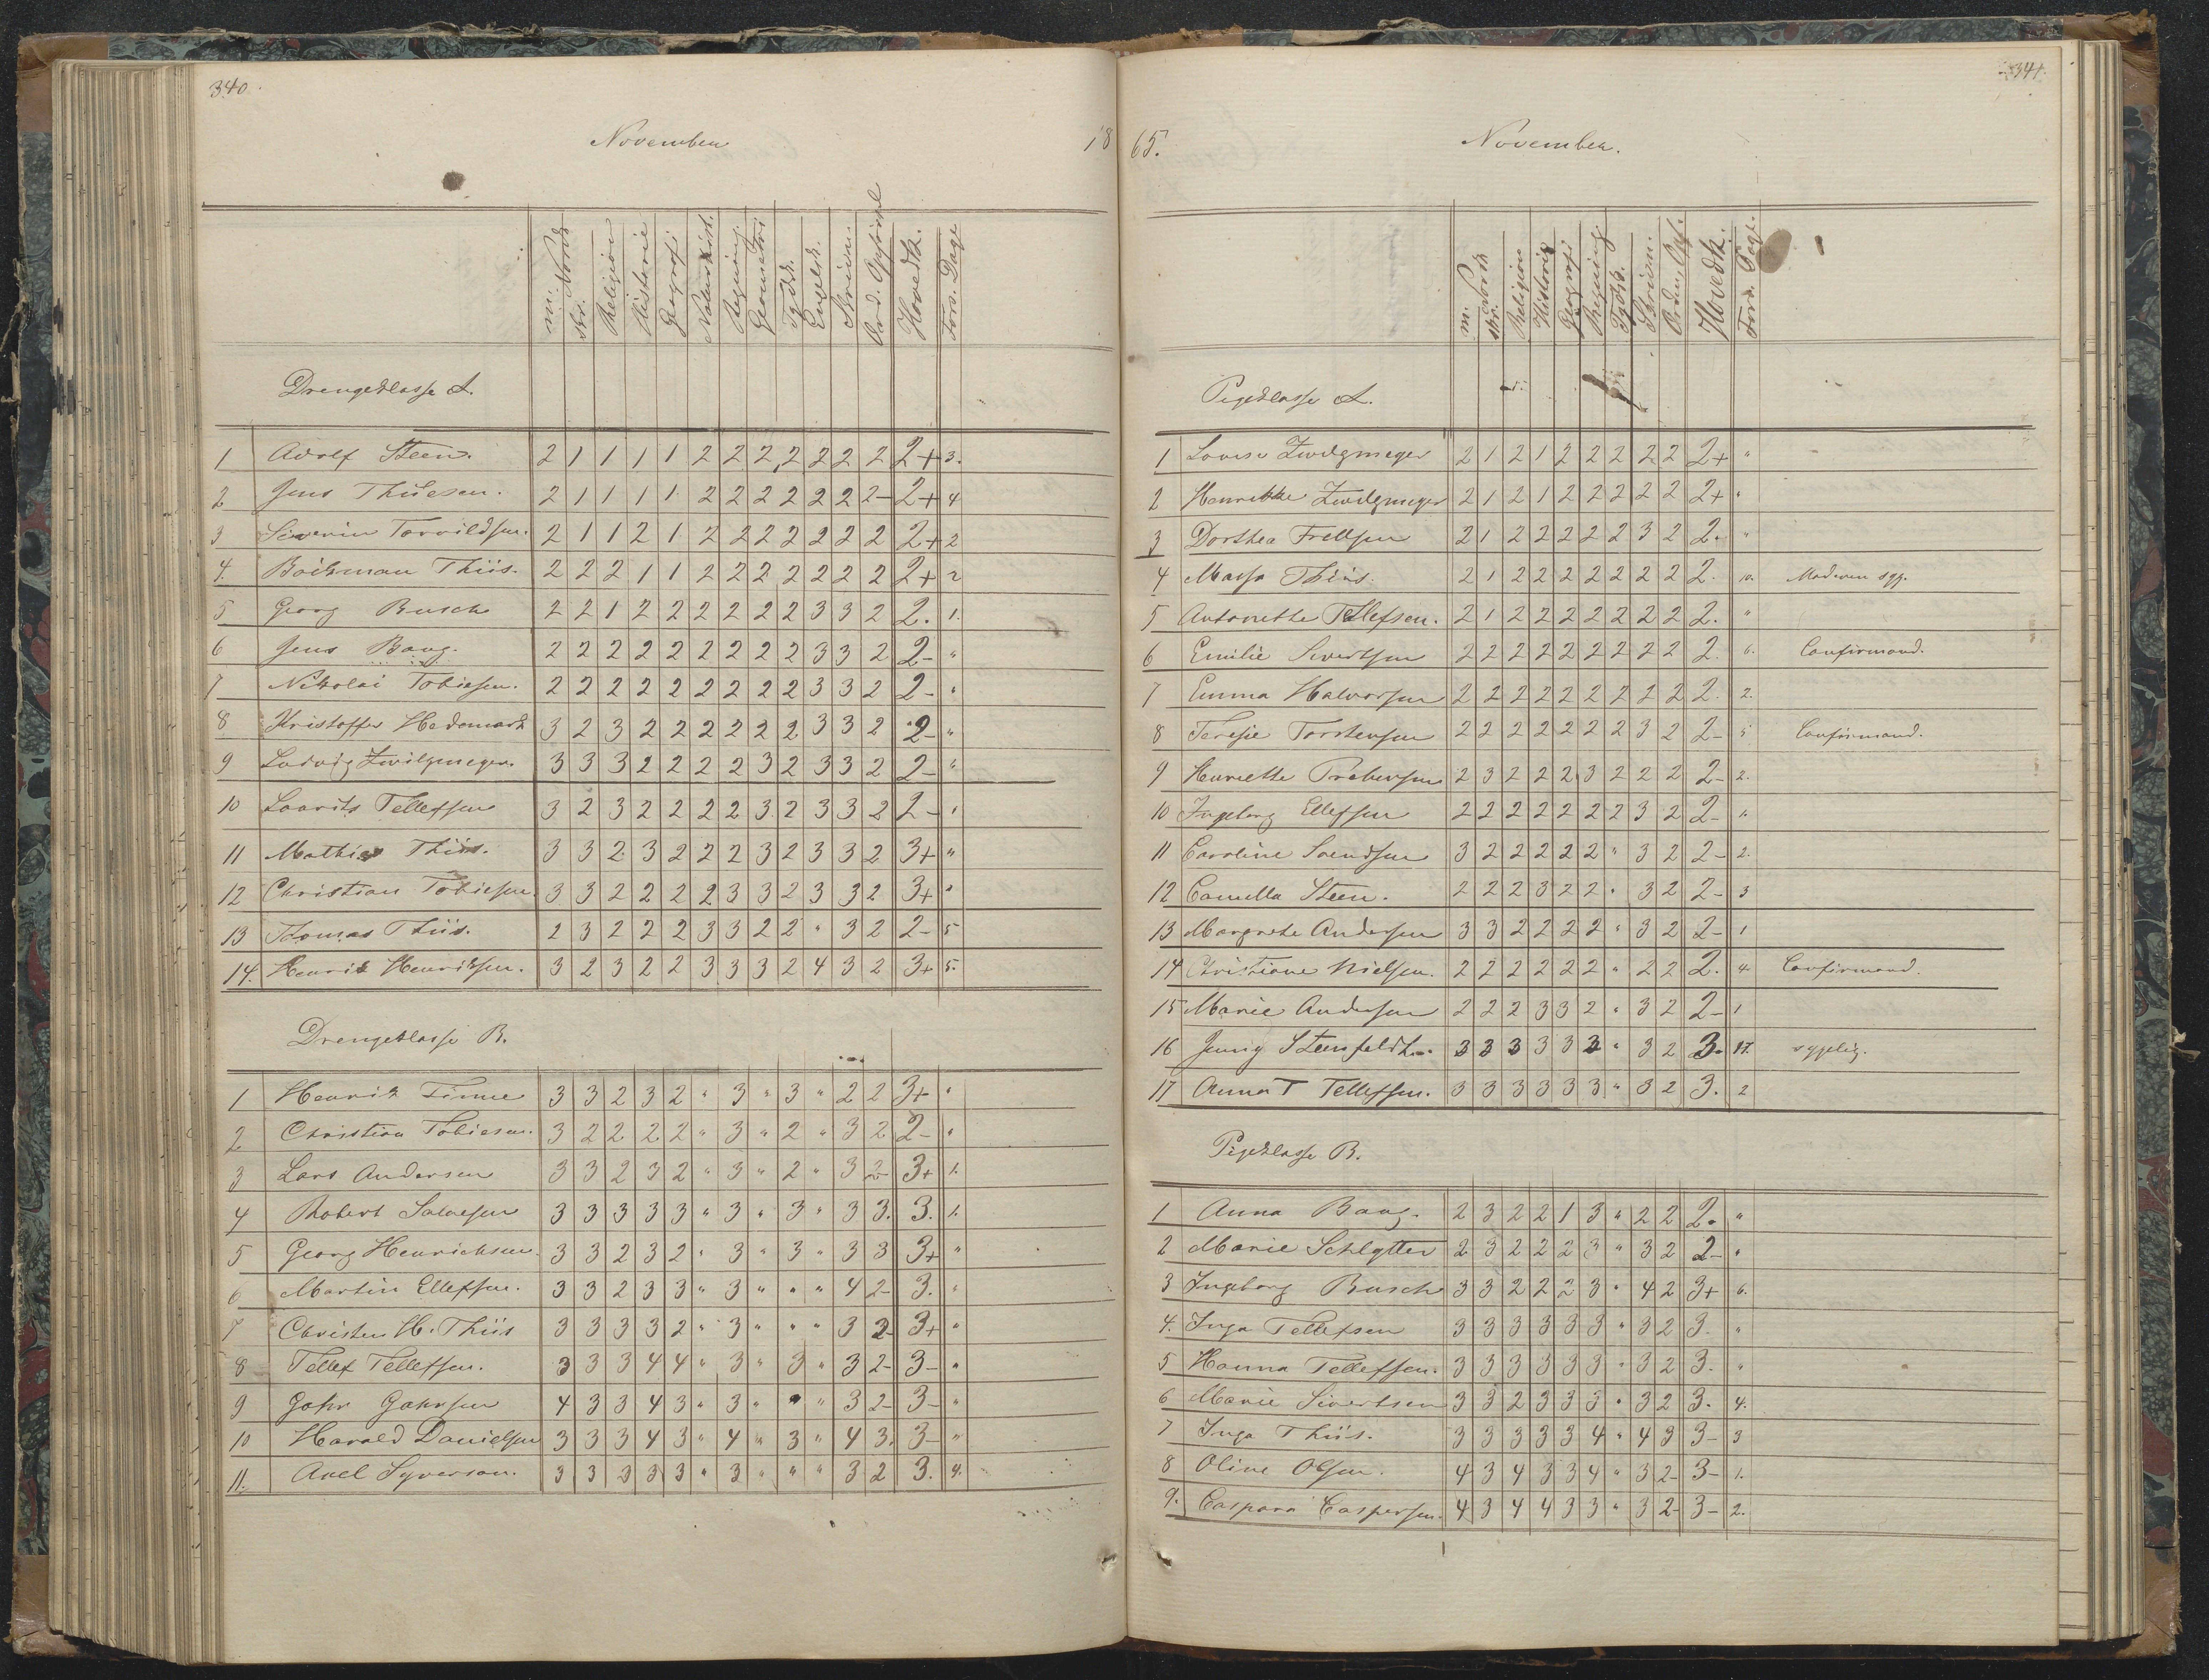 340
November 18
m. Norsk
skr.
Religion
Historie
Geografi
Naturhist.
Regning
Geometri
Tydsk.
Engelsk.
Skrivn.
Ord. Opførsel
Hovedk.
Fors. Dage
Drengeklasse A.
1 Adolf Steen. 2 1 1 1 1 2 2 2 2 2 2 2 2+ 3.
2 Jens Thiesen. 2 1 1 1 1 2 2 2 2 2 2 2- 2+ 4
3 Severin Torvildsen. 2 1 1 2 1 2 2 2 2 2 2 2 2+ 2
4. Boickman Thiis. 2 2 2 1 1 2 2 2 2 2 2 2 2+ 2
5 Georg Busch 2 2 1 2 2 2 2 2 2 3 3 2 2. 1.
6 Jens Bang. 2 2 2 2 2 2 2 2 2 3 3 2 2- "
7 Nikolai Tobiesen. 2 2 2 2 2 2 2 2 2 3 3 2 2- "
8 Kristoffer Hedemark 3 2 3 2 2 2 2 2 2 3 3 2 2- "
9 Ludvig Zwilgmeyer. 3 3 3 2 2 2 2 3 2 3 3 2 2- "
10 Laurits Tellefsen 3 2 3 2 2 2 2 3 2 3 3 2 2- "
11 Mathias Thiis. 3 3 2 3 2 2 2 3 2 3 3 2 3+ "
12 Christian Tobiesen. 3 3 2 2 2 2 3 3 2 3 3 2 3+ "
13 Thomas Thiis. 2 3 2 2 2 3 3 2 2 " 3 2 2- 5
14. Henrik Henriksen. 3 2 3 2 2 3 3 3 2 4 3 2 3+ 5.
Drengeklasse B.
1 Henrik Finne 3 3 2 3 2 " 3 " 3 " 2 2 3+ "
2 Christian Tobiesen. 3 2 2 2 2 " 3 " 2 " 3 2 2- "
3 Lars Andersen 3 3 2 3 2 " 3 " 2 " 3 2- 3+ 1.
4 Robert Salvesen 3 3 3 3 3 " 3 " 3 " 3 3. 3. 1.
5 Georg Henrichsen. 3 3 2 3 2 " 3 " 3 " 3 3 3+ "
6 Martin Ellefsen. 3 3 2 3 3 " 3 " " " 4 2- 3. "
7 Christen H. Thiis 3 3 3 3 2 " 3 " " " 3 2- 3+ "
8 Tellef Tellefsen. 3 3 3 4 4 " 3 " 3 " 3 2- 3- "
9 Gahr Gahrsen 4 3 3 4 3 " 3 " " " 3 2- 3- "
10 Harald Danielsen 3 3 3 4 3 " 4 " 3 " 4 3. 3- "
11. Axel Syversen. 3 3 3 3 3 " 3 " " " 3 2 3. 4.
341.
65. November.
m. Norsk
skr.
Religion
Historie
Geografi
Regning
Tydsk.
Skrivn.
Orden Opf.
Hovedk.
Fors. Dage.
Pigeklasse A.
1 Lovise Zwilgmeyer 2 1 2 1 2 2 2 2 2 2+ "
2 Henrikke Zwilgmeyer 2 1 2 1 2 2 2 2 2 2+ "
3 Dorthea Frellsen 2 1 2 2 2 2 2 3 2 2. "
4 Massa Thiis. 2 1 2 2 2 2 2 2 2 2. 10. Moderen syg.
5 Antonette Tellefsen. 2 1 2 2 2 2 2 2 2 2. "
6 Emilie Sivertsen 2 2 2 2 2 2 2 2 2 2. 6. Confirmand.
7 Emma Halvorsen 2 2 2 2 2 2 2 2 2 2. 2.
8 Teresie Torstensen 2 2 2 2 2 2 2 3 2 2- 5 Confirmand.
9 Henriette Prebensen 2 3 2 2 2 3 2 2 2 2- 2.
10 Ingeborg Ellefsen 2 2 2 2 2 2 2 3 2 2- 1.
11 Caroline Svendsen 3 2 2 2 2 2 " 3 2 2- 2.
12 Camilla Steen. 2 2 2 3 2 2 " 3 2 2- 3
13 Margrete Andersen 3 3 2 2 2 2 " 3 2 2- 1
14 Christiane Nielsen. 2 2 2 2 2 2 " 2 2 2. 4. Confirmand.
15 Marie Andersen 2 2 2 3 3 2 " 3 2 2- 1
16 Jenny Steenfeldt. 3 3 3 3 3 3 " 3 2 3. 17. sygelig.
17 Anna T Tellefsen. 3 3 3 3 3 3 " 3 2 3. 2
Pigeklasse B.
1 Anna Bang. 2 3 2 2 1 3 " 2 2 2. "
2 Marie Schlytter 2 3 2 2 2 3 " 3 2 2- "
3 Ingeborg Busch 3 3 2 2 2 3 " 4 2 3+ 6.
4. Inga Tellefsen 3 3 3 3 3 3 " 3 2 3. "
5 Hanna Tellefsen. 3 3 3 3 3 3 " 3 2 3. "
6 Marie Sivertsen 3 3 2 3 3 3 " 3 2 3. 4.
7 Inga Thiis. 3 3 3 3 3 4 " 4 3 3- 3
8 Oline Olsen. 4 3 4 3 3 4 " 3 2- 3- 1.
9. Caspara Caspersen. 4 3 4 4 3 3 " 3 2- 3- 2.